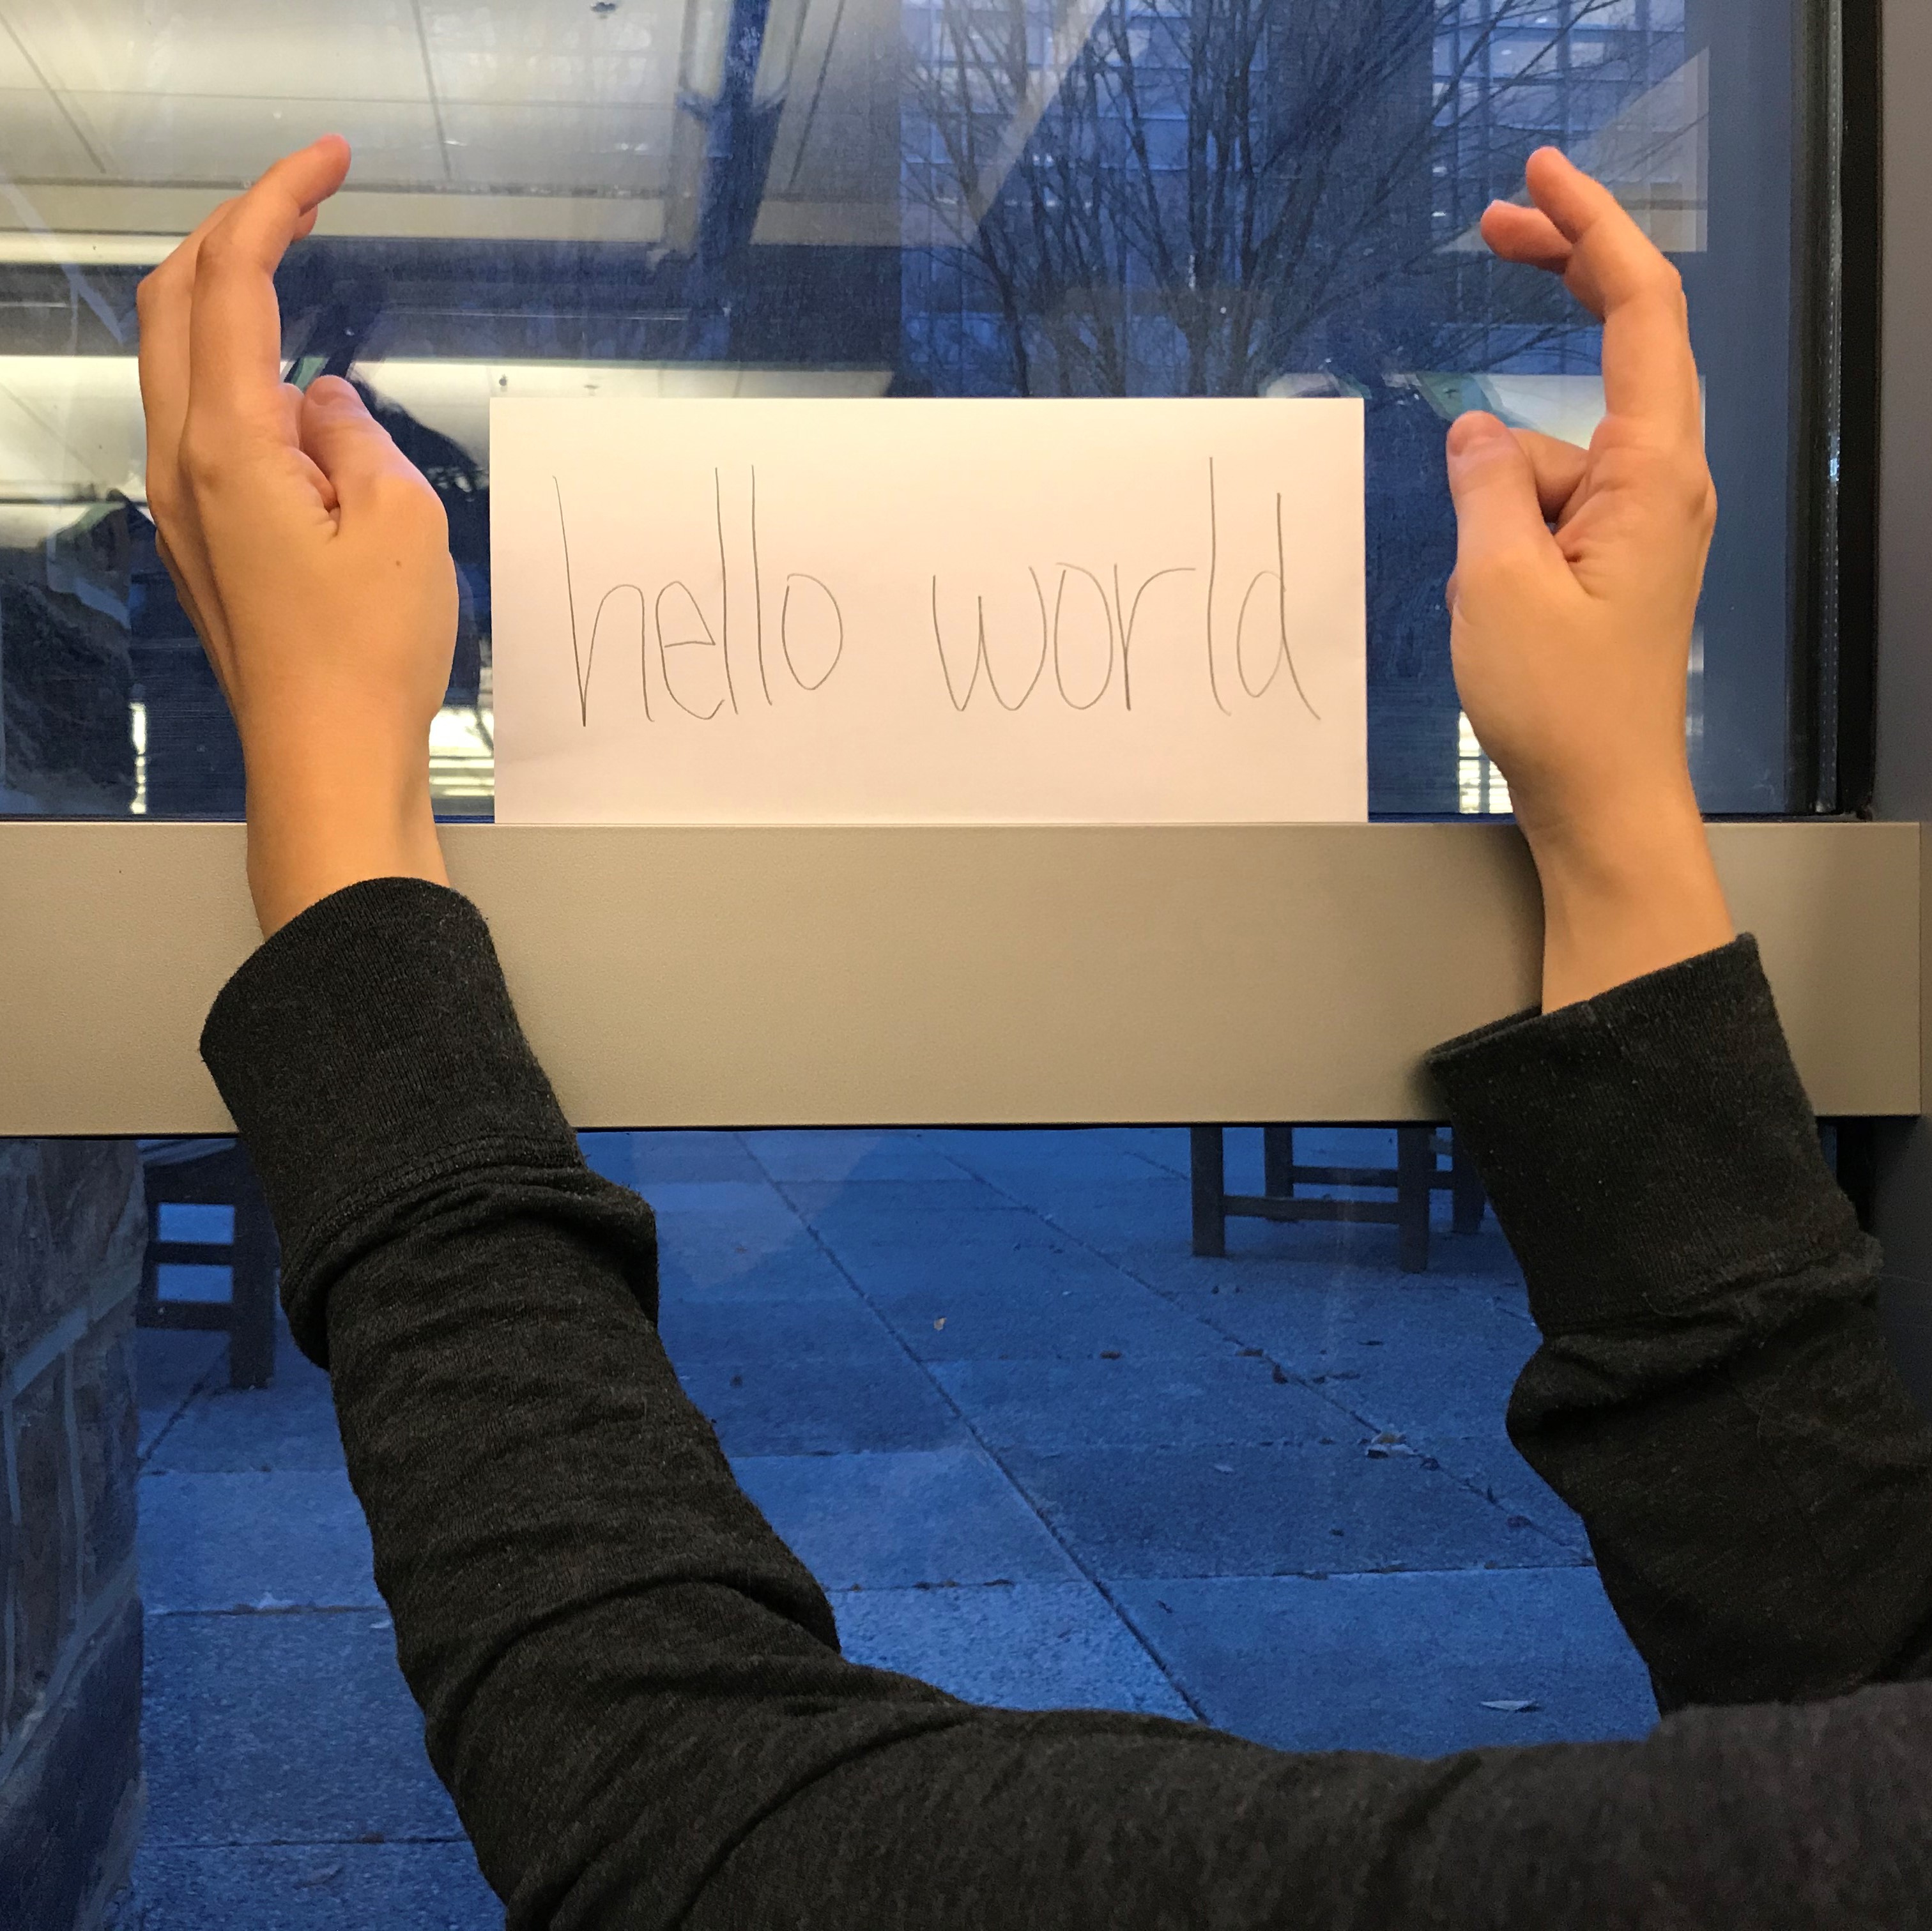 hello world